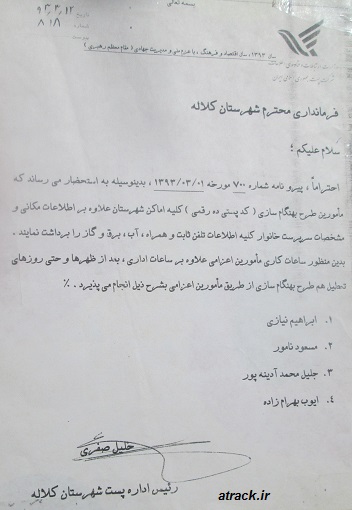 بسمه تعالی
۹۳،۳،۱۲
۸۱۸
سال ۱۳۹۳، سال اقتصاد و فرهنگ، با عزم ملی و مدیریت جهادی (مقام معظم رهبری)
فرمانداری محترم شهرستان کلاله
سلام علیکم ؛
احتراماً، پیرو نامه شماره ۷۰۰ مورخه ۱۳۹۳/۰۳/۰۱ ، بدینوسیله به استحضار می رساند که
مأمورین طرح بهنگام سازی ( کد پستی ده رقمی ) کلیه اماکن شهرستان علاوه بر اطلاعات مکانی و
مشخصات سرپرست خانوار کلیه اطلاعات تلفن ثابت و همراه ، آب ، برق و گاز را برداشت نمایند .
بدین منظور ساعات کاری مأمورین اعزامی علاوه بر ساعات اداری ، بعد از ظهرها و حتی روزهای
تعطیل هم طرح بهنگام سازی از طریق مأمورین اعزامی بشرح ذیل انجام می پذیرد . ٪
۱. ابراهیم نیازی
۲. مسعود نامور
۳. جلیل محمد آدینه پور
۴. ایوب بهرام زاده
خلیل صفری
رئیس اداره پست شهرستان کلاله
atrack.ir